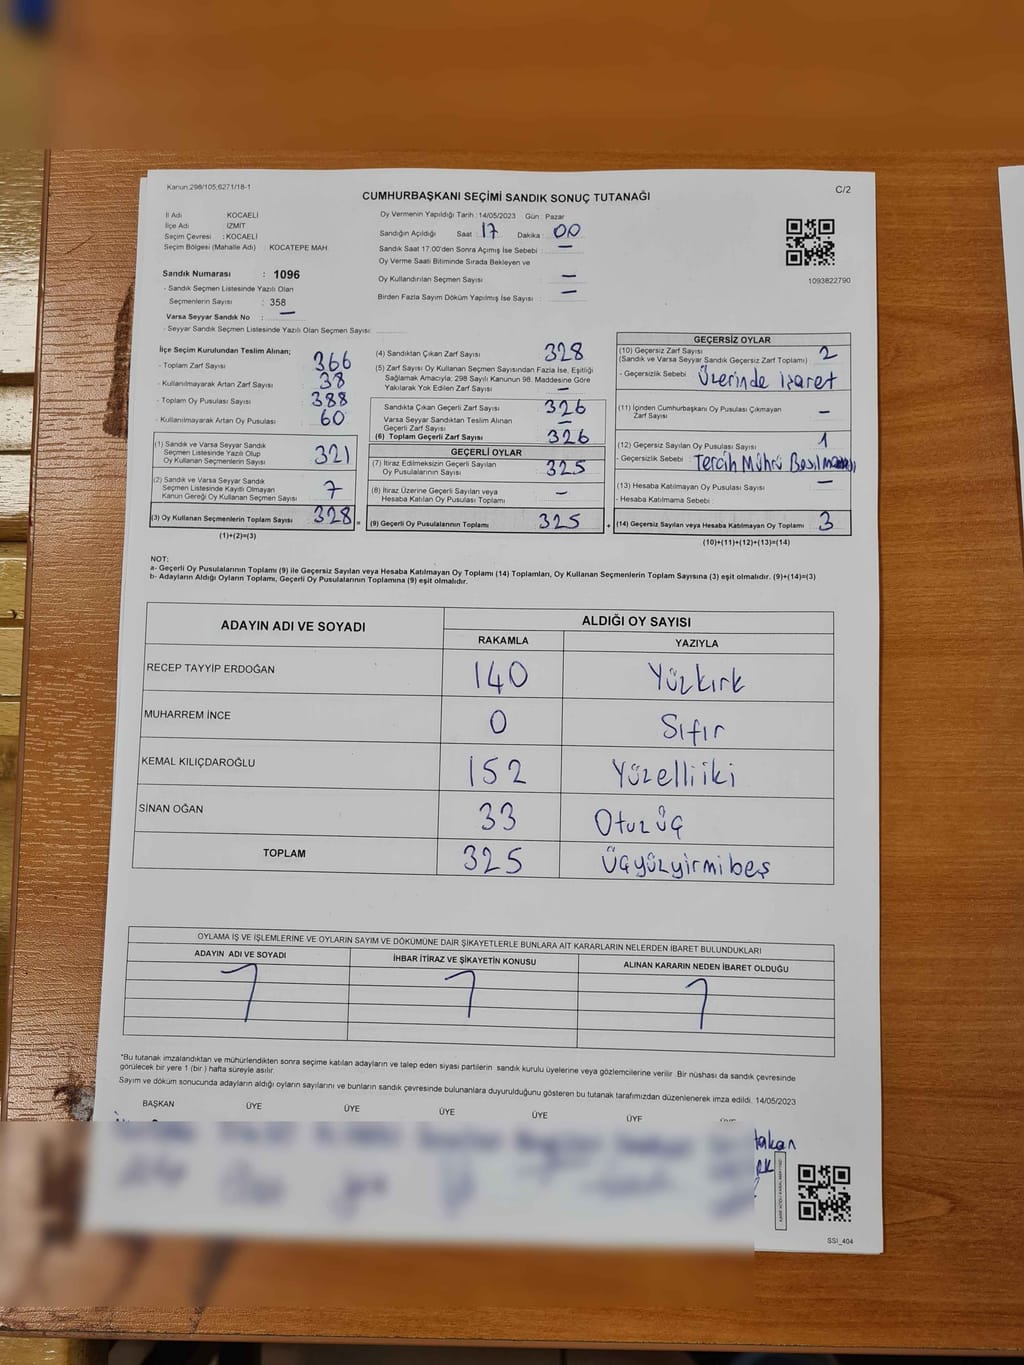 Kanun:298/105;6271/18-1
CUMHURBAŞKANI SEÇİMİ SANDIK SONUÇ TUTANAĞI
C/2
İl Adı KOCAELİ
İlçe Adı İZMİT
Seçim Çevresi : KOCAELİ
Seçim Bölgesi (Mahalle Adı) : KOCATEPE MAH.
Sandık Numarası : 1096
- Sandık Seçmen Listesinde Yazılı Olan
Seçmenlerin Sayısı : 358
Varsa Seyyar Sandık No : —
- Seyyar Sandık Seçmen Listesinde Yazılı Olan Seçmen Sayısı:
Oy Vermenin Yapıldığı Tarih : 14/05/2023 Gün : Pazar
Sandığın Açıldığı Saat : 17 Dakika : 00
Sandık Saat 17:00'den Sonra Açımış İse Sebebi : —
Oy Verme Saati Bitiminde Sırada Bekleyen ve
Oy Kullandırılan Seçmen Sayısı : —
Birden Fazla Sayım Döküm Yapılmış İse Sayısı : —
1093822790
İlçe Seçim Kurulundan Teslim Alınan;
- Toplam Zarf Sayısı : 366
- Kullanılmayarak Artan Zarf Sayısı : 38
- Toplam Oy Pusulası Sayısı : 388
- Kullanılmayarak Artan Oy Pusulası : 60
(1) Sandık ve Varsa Seyyar Sandık
Seçmen Listesinde Yazılı Olup
Oy Kullanan Seçmenlerin Sayısı : 321
(2) Sandık ve Varsa Seyyar Sandık
Seçmen Listesinde Kayıtlı Olmayan
Kanun Gereği Oy Kullanan Seçmen Sayısı : 7
(3) Oy Kullanan Seçmenlerin Toplam Sayısı : 328 =
(1)+(2)=(3)
(4) Sandıktan Çıkan Zarf Sayısı : 328
(5) Zarf Sayısı Oy Kullanan Seçmen Sayısından Fazla İse, Eşitliği
Sağlamak Amacıyla; 298 Sayılı Kanunun 98. Maddesine Göre
Yakılarak Yok Edilen Zarf Sayısı : —
Sandıkta Çıkan Geçerli Zarf Sayısı : 326
Varsa Seyyar Sandıktan Teslim Alınan
Geçerli Zarf Sayısı : —
(6) Toplam Geçerli Zarf Sayısı : 326
GEÇERLİ OYLAR
(7) İtiraz Edilmeksizin Geçerli Sayılan
Oy Pusulalarının Sayısı : 325
(8) İtiraz Üzerine Geçerli Sayılan veya
Hesaba Katılan Oy Pusulası Toplamı : —
(9) Geçerli Oy Pusulalarının Toplamı : 325 +
GEÇERSİZ OYLAR
(10) Geçersiz Zarf Sayısı : 2
(Sandık ve Varsa Seyyar Sandık Geçersiz Zarf Toplamı)
- Geçersizlik Sebebi : Üzerinde işaret
(11) İçinden Cumhurbaşkanı Oy Pusulası Çıkmayan
Zarf Sayısı : —
(12) Geçersiz Sayılan Oy Pusulası Sayısı : 1
- Geçersizlik Sebebi : Tercih Mührü
(13) Hesaba Katılmayan Oy Pusulası Sayısı : —
- Hesaba Katılmama Sebebi :
(14) Geçersiz Sayılan veya Hesaba Katılmayan Oy Toplamı : 3
(10)+(11)+(12)+(13)=(14)
NOT:
a- Geçerli Oy Pusulalarının Toplamı (9) ile Geçersiz Sayılan veya Hesaba Katılmayan Oy Toplamı (14) Toplamları, Oy Kullanan Seçmenlerin Toplam Sayısına (3) eşit olmalıdır. (9)+(14)=(3)
b- Adayların Aldığı Oyların Toplamı, Geçerli Oy Pusulalarının Toplamına (9) eşit olmalıdır.
ADAYIN ADI VE SOYADI ALDIĞI OY SAYISI
RAKAMLA YAZIYLA
RECEP TAYYİP ERDOĞAN 140 Yüzkırk
MUHARREM İNCE 0 Sıfır
KEMAL KILIÇDAROĞLU 152 Yüzelliiki
SİNAN OĞAN 33 Otuzüç
TOPLAM 325 Üçyüzyirmibeş
OYLAMA İŞ VE İŞLEMLERİNE VE OYLARIN SAYIM VE DÖKÜMÜNE DAİR ŞİKAYETLERLE BUNLARA AİT KARARLARIN NELERDEN İBARET BULUNDUKLARI
ADAYIN ADI VE SOYADI İHBAR İTİRAZ VE ŞİKAYETİN KONUSU ALINAN KARARIN NEDEN İBARET OLDUĞU
*Bu tutanak imzalandıktan ve mühürlendikten sonra seçime katılan adayların ve talep eden siyasi partilerin sandık kurulu üyelerine veya gözlemcilerine verilir. Bir nüshası da sandık çevresinde
görülecek bir yere 1 (bir ) hafta süreyle asılır.
Sayım ve döküm sonucunda adayların aldığı oyların sayılarını ve bunların sandık çevresinde bulunanlara duyurulduğunu gösteren bu tutanak tarafımızdan düzenlenerek imza edildi. 14/05/2023
BAŞKAN ÜYE ÜYE ÜYE ÜYE ÜYE ÜYE
SSI_404